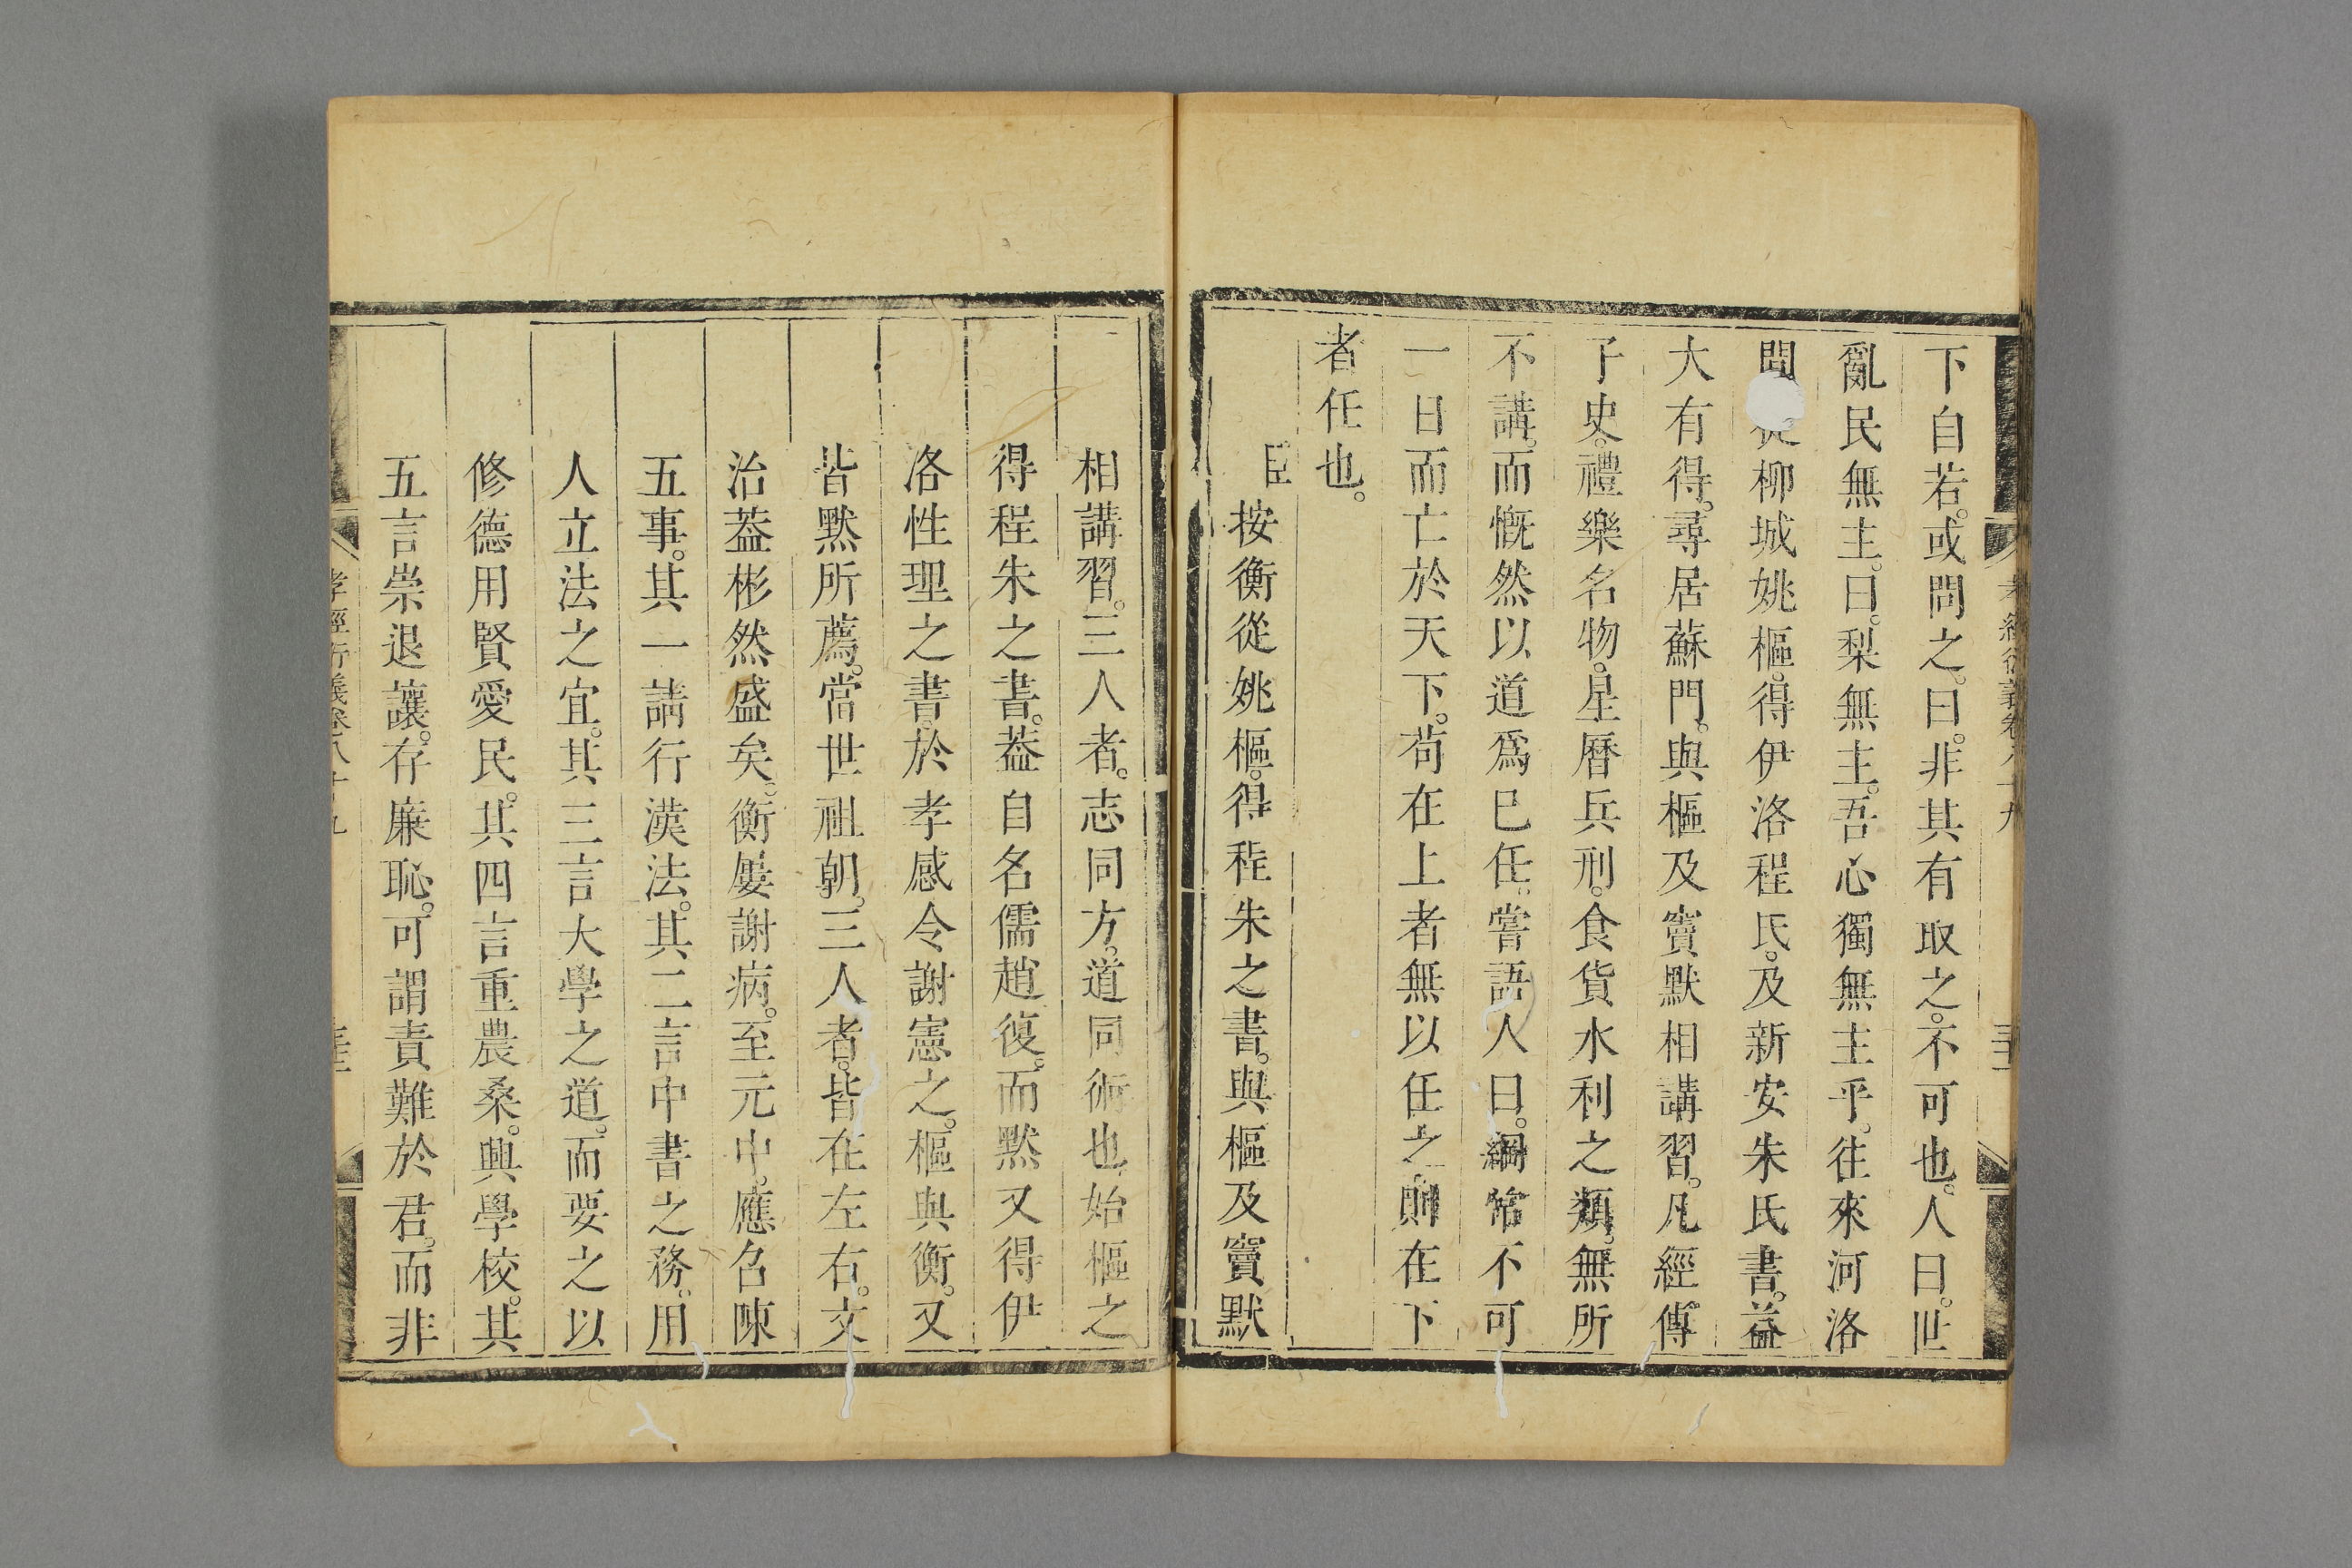 下自若。或問之。曰。非其有取之。不可也。人曰。世
亂民無主。曰。梨無主。吾心獨無主乎。往來河洛
間。從柳城姚樞。得伊洛程氏。及新安朱氏書。益
大有得。尋居蘇門。與樞及竇默相講習。凡經傳
子史。禮樂名物。星曆兵刑。食貨水利之類。無所
不講。而慨然以道爲已任。嘗語人曰。綱常不可
一日而亡於天下。苟在上者無以任之。則在下
者任也。
臣按衡從姚樞。得程朱之書。與樞及竇默
相講習。三人者。志同方。道同術也。始樞之
得程朱之書。葢自名儒趙復。而默又得伊
洛性理之書。於孝感令謝憲之。樞與衡。又
皆默所薦。當世祖朝。三人者。皆在左右。文
治葢彬然盛矣。衡屢謝病。至元中。應召陳
五事。其一請行漢法。其二言中書之務。用
人立法之宜。其三言大學之道。而要之以
修德用賢愛民。其四言重農桑。興學校。其
五言崇退讓。存廉恥。可謂責難於君。而非
孝經衍義卷八十九